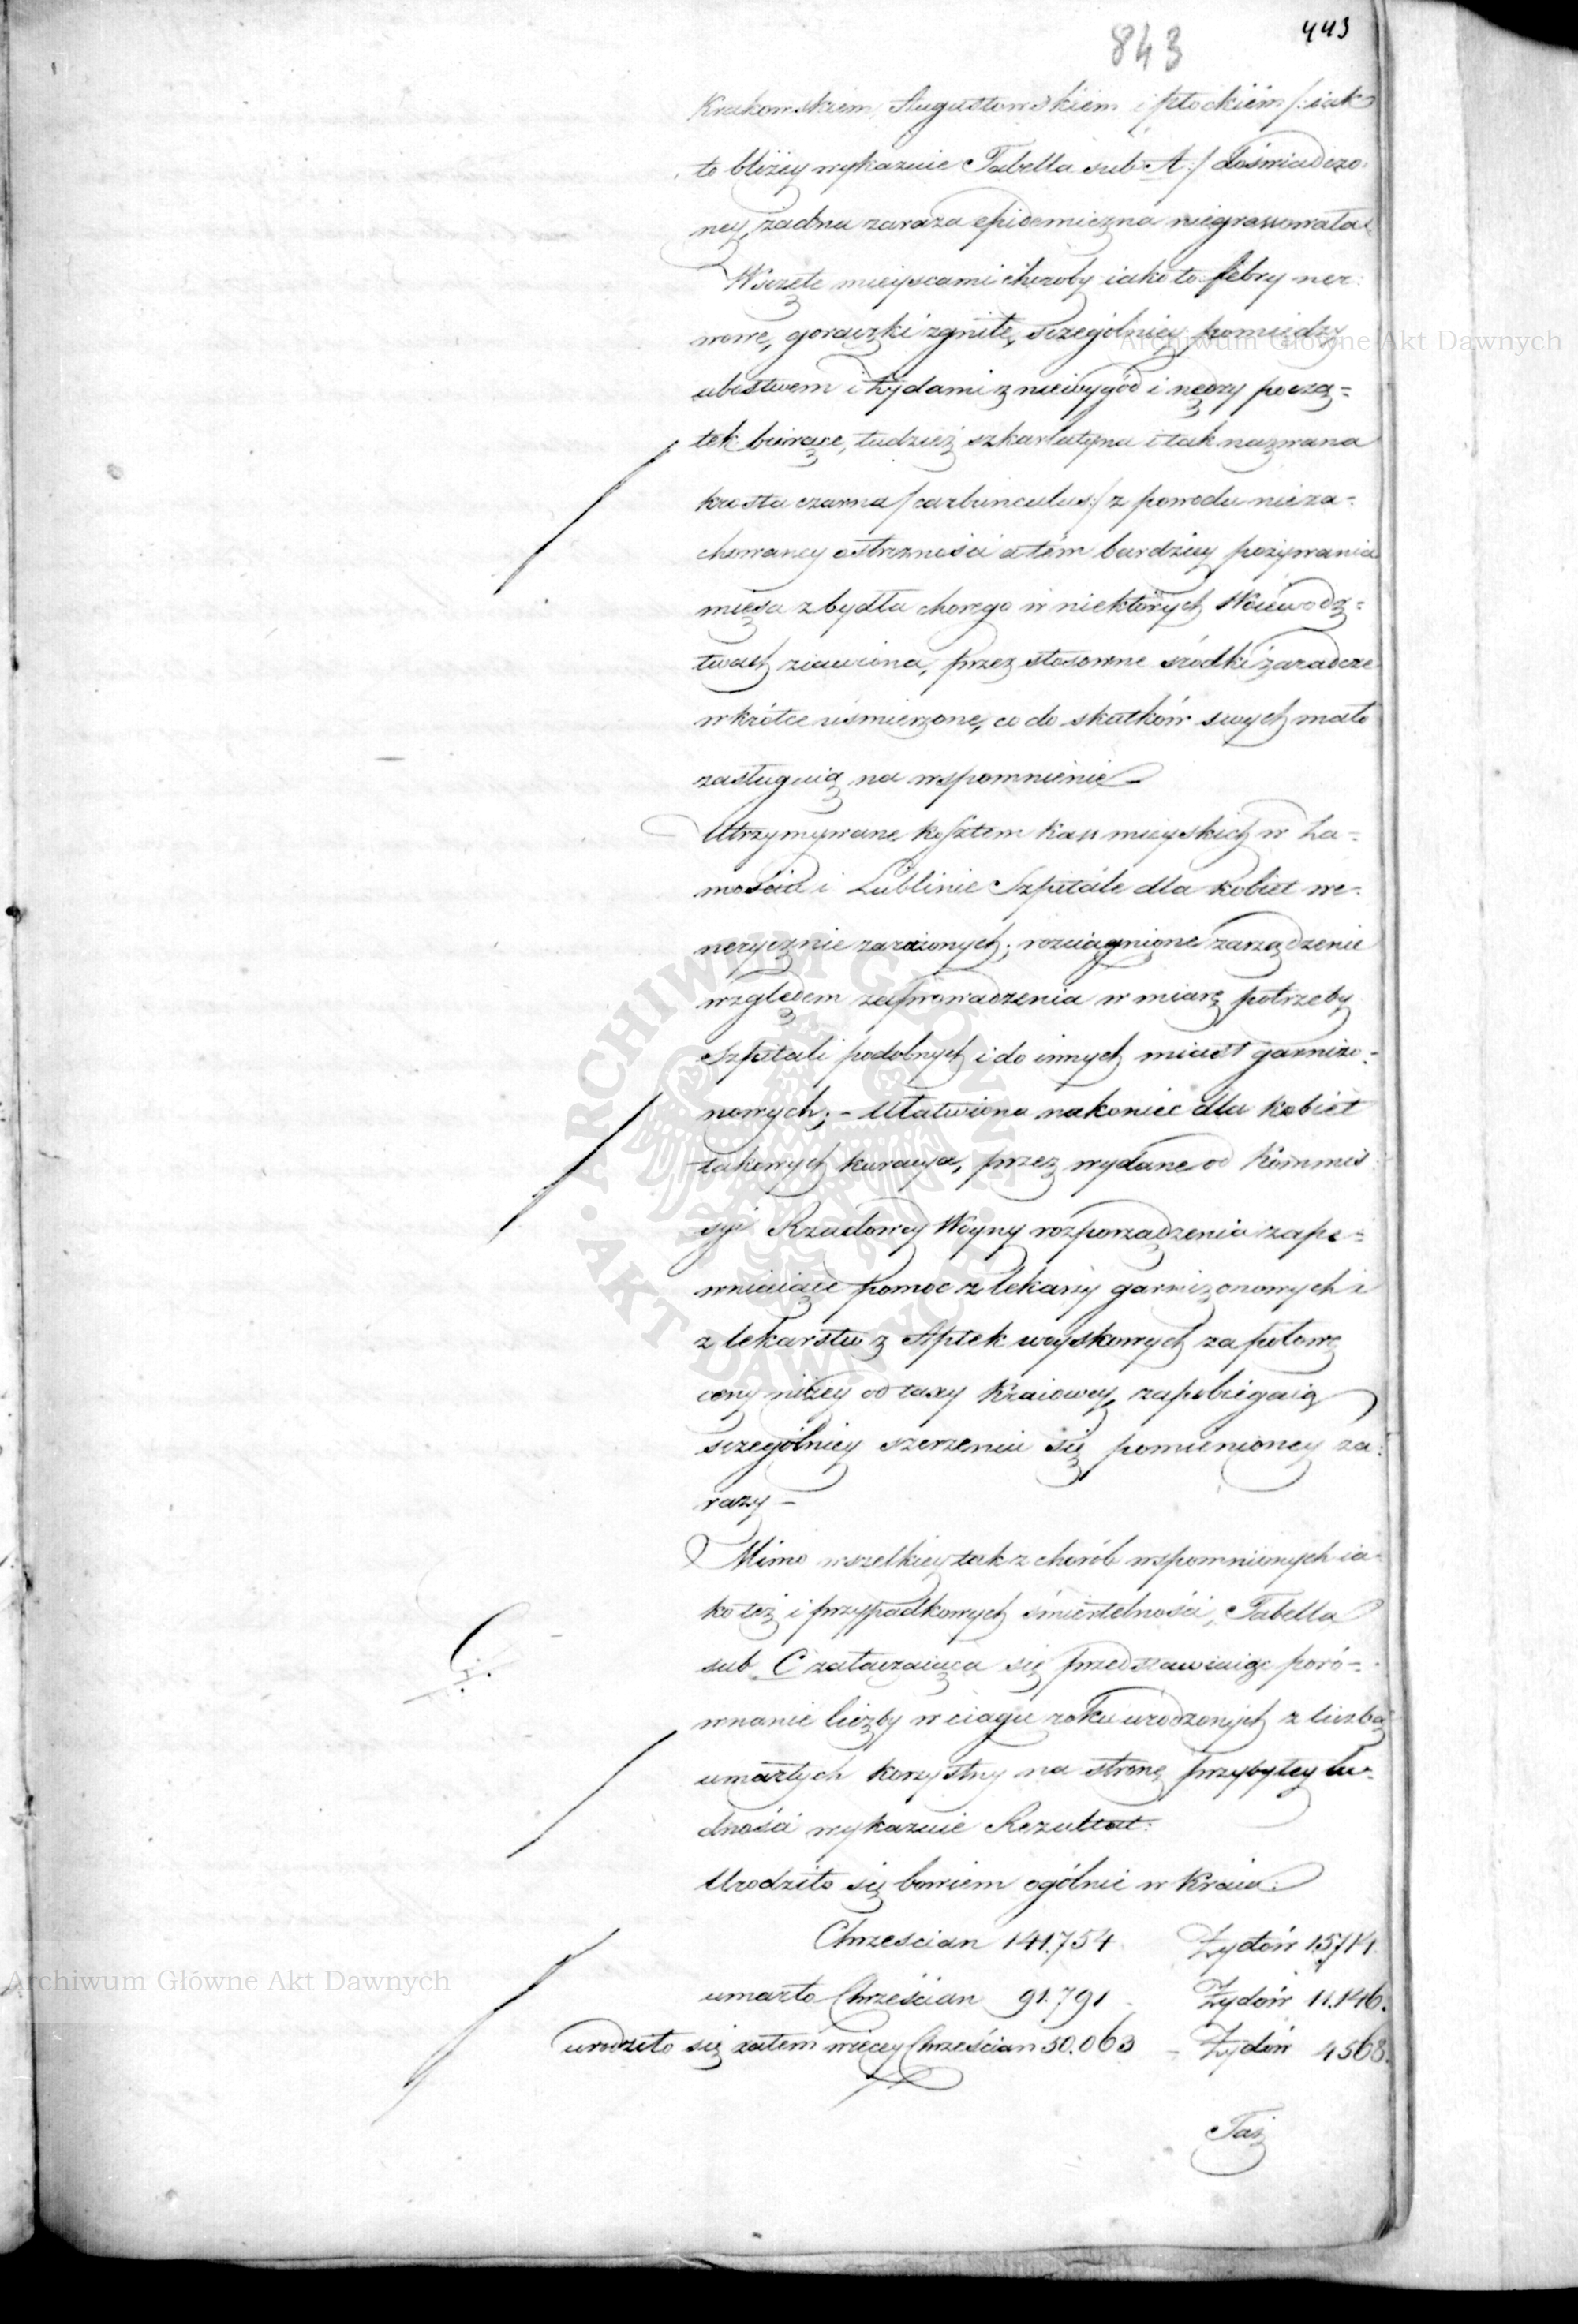 843
443
Krakowskiem, Augustowskiém i płockiém /: iak
to bliżey wykazuie Tabella sub A :/ doświadczo-
ney, żadna zaraza epidemiczna niegrassowała.
Wszczęte mieyscami choroby iako to febry ner-
wowe, gorączki zgniłe, sczególniey pomiędzy
ubóstwem i żydami z niewygód i nędzy począ=
tek biorące, tudzież szkarlatyna i tak nazwana
krosta czarna /:carbunculus:/ z powodu nieza-
chowaney ostrzności a tém bardziey pożywania
mięsa z bydła chorego w niektórych Woiewodz=
twach ziawiona, przez stosowne środki zaradcze
wkrótce uśmierzone, co do skutków swych mało
zasługuią na wspomnienie
Utrzymywane kosztem Kass mieyskich w Za-
mościu i Lublinie Szpitále dla kobiet we-
nerycznie zarażonych; rozciągnione zarządzenie
względem zaprowadzenia w miarę potrzeby
szpitali podobnych i do innych miast garnizo-
nowych; - Ułatwiona nakoniec dla kobiet
takowych kuracya, przez wydane od Kommis-
syi Rządowey Woyny rozporządzenia zape-
wniaiące pomoc z lekarzy garnizonowych i
z lekarstw z Aptek woyskowych za połowę
ceny niżey od taxy Kraiowey, zapobiegaią
sczególniey szerzeniu się pomienioney za-
razy -
Mimo wszelkiey tak z chorób wspomnionych ia-
ko też i przypadkowych śmiertelności, Tabella
sub C załączaiąca się przedstawiaiąc poró=
C
wnanie liczby w ciągu roku urodzonych z liczbą
umarłych korzystny na stronę przybyłey lu-
dności wykazuie Rezultat:
Urodziło się bowiem ogólnie w Kraiu:
Chrześcian 141.754. Żydów 15,714.
umarło Chrześcian 91.791 - Żydów 11.146.
urodziło się zatem więcey Chrześcian 50.063 - Żydów 4568.
Taż
Archiwum Główne Akt Dawnych
Archiwum Główne Akt Dawnych
ARCHIWUM GŁÓWNE · AKT DAWNYCH ·